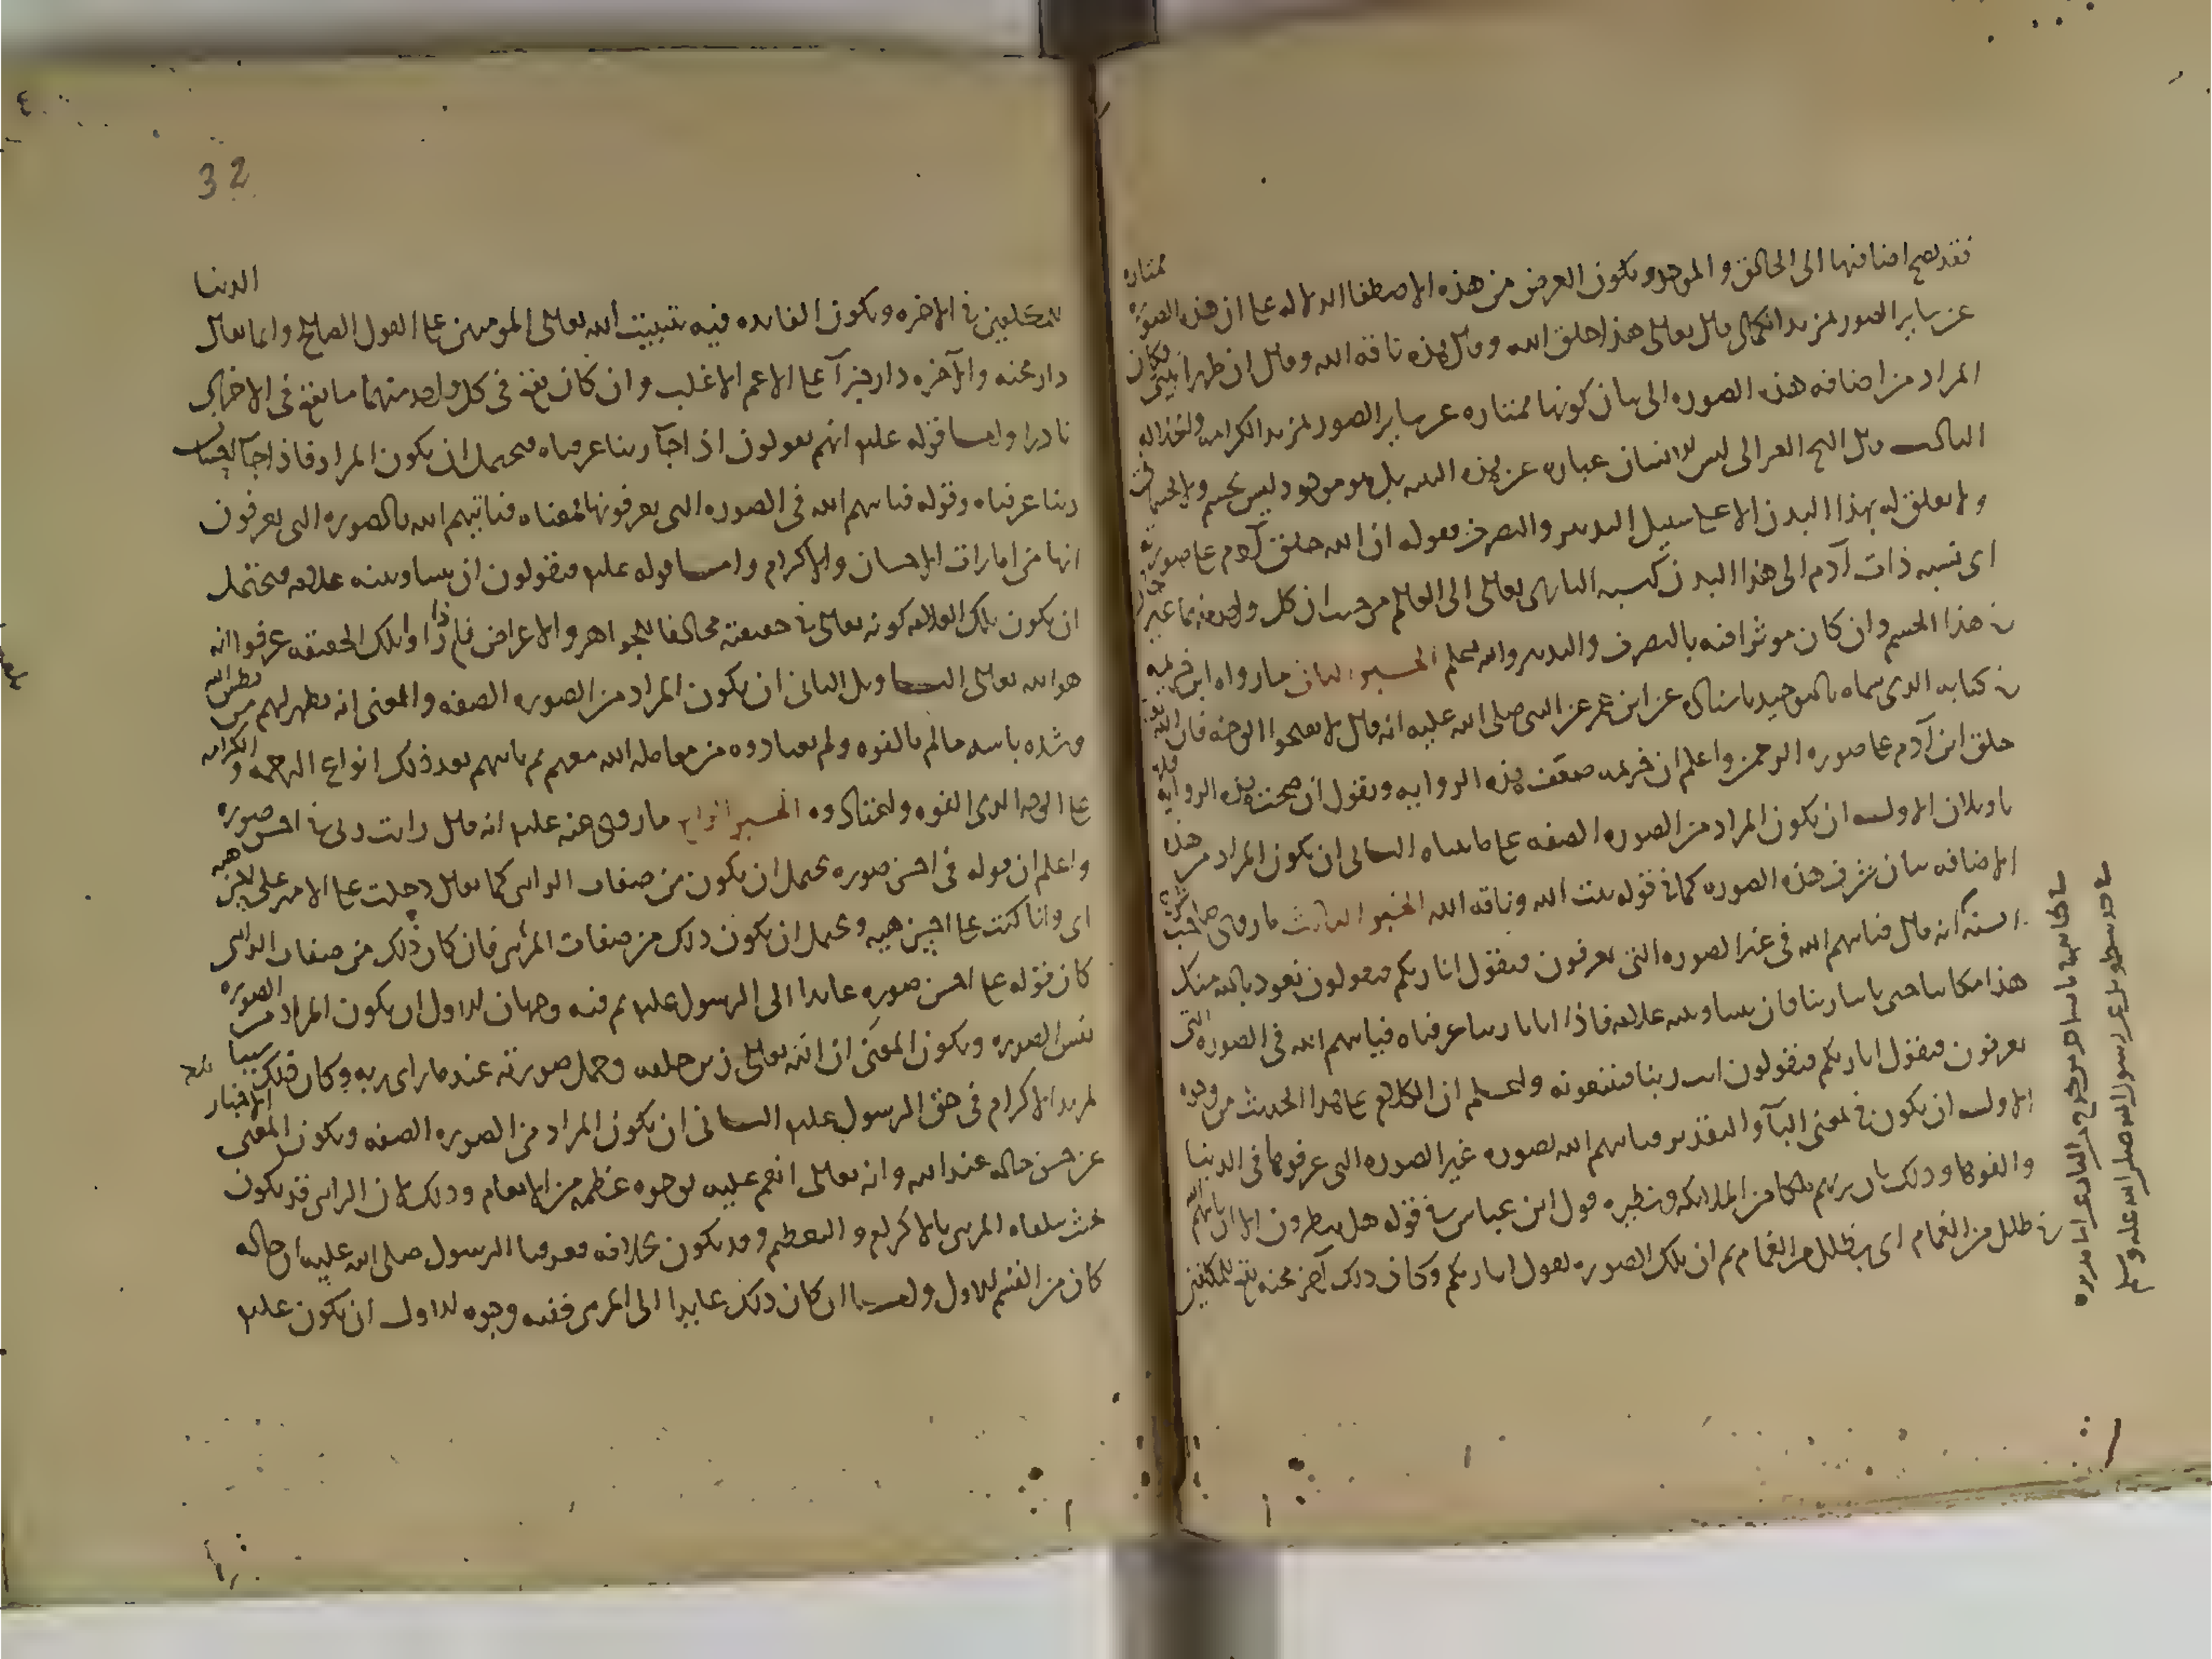 فقد يصح اضافتها الى الخالق والموجد ويكون الغرض من هذه الاضافة الدلالة على ان هذه الصورة ممتازة
عن سائر الصور بمزيد الكمال قال تعالى هذا خلق الله وقال هذه ناقة الله وقال ان طهرا بيتي فكان
المراد من اضافة هذه الصورة اليه بيان كونها ممتازة عن سائر الصور لمزيد الكرامة
الثالث قال الشيخ الغزالي ليس الانسان عبارة عن هذه البنية بل هو موجود ليس بجسم ولا جسماني
ولا تعلق له بهذا البدن الا على سبيل التدبير والتصرف فقوله ان الله خلق آدم على صورته
اى نسبة ذات آدم الى هذا البدن كنسبة البارى تعالى الى العالم من حيث ان كل واحد منهما غير حال
في هذا الجسم وان كان موثرا فيه بالتصرف والتدبير والله اعلم الخبر الثاني ما رواه ابن خزيمة
في كتابه الذي سماه بالتوحيد باسناده عن ابن عمر عن النبي صلى الله عليه انه قال لا تقبحوا الوجه فان الله تعالى
خلق ابن آدم على صورة الرحمن واعلم ان ابن خزيمة ضعف هذه الرواية ونقول ان صحت هذه الرواية فلها
تاويلان الاول ان يكون المراد من الصورة الصفة على ما بيناه الثاني ان يكون المراد من هذه
الاضافة بيان شرف هذه الصورة كما في قوله بيت الله وناقة الله الخبر الثالث ما روى صاحب شرح
السنة انه قال فياتيهم الله في غير الصورة التي يعرفون فيقول انا ربكم فيقولون نعوذ بالله منك
هذا مكاننا حتى ياتينا ربنا فان بيننا وبينه علامة فاذا اتانا ربنا عرفناه فياتيهم الله في الصورة التي
يعرفون فيقول انا ربكم فيقولون انت ربنا فيتبعونه واعلم ان الكلام على هذا الحديث من وجوه
الاول ان يكون في بمعنى الباء والتقدير فياتيهم الله بصورة غير الصورة التي عرفوها في الدنيا
والفوها وذلك بان يريهم ملكا من الملائكة ونظيره قول ابن عباس في قوله هل ينظرون الا ان ياتيهم الله
في ظلل من الغمام اى بظلل من الغمام ثم ان تلك الصورة تقول انا ربكم وكان ذلك آخر محنة تقع للمكلفين
رسول الله صلى الله عليه وسلم
32
للمكلفين في الاخرة ويكون الفائدة فيه تثبيت الله تعالى المومنين على القول الصالح وانما يقال الدنيا
دار محنة والآخرة دار جزآء على الاعم الاغلب وان كان يقع في كل واحد منهما ما يقع في الاخرى
نادرا واما قوله عليه انهم يقولون اذا جآء ربنا عرفناه فيحتمل ان يكون المراد فاذا جآء احسان
ربنا عرفناه وقوله فياتيهم الله في الصورة التي يعرفونها فمعناه فياتيهم الله بالصورة التي يعرفون
انها من امارات الاحسان والاكرام واما قوله عليه فيقولون ان بيننا وبينه علامة فيحتمل
ان يكون تلك العلامة كونه تعالى في حقيقته مخالفا للجواهر والاعراض فاذا راوا تلك الحقيقة عرفوا انه
هو الله تعالى التاويل الثاني ان يكون المراد من الصورة الصفة والمعنى انه يظهر لهم من بطش الله
وشدة باسه ما لم يالفوه ولم يعتادوه من معاملة الله معهم ثم ياتيهم بعد ذلك انواع الرحمة والكرامة
على الوجه الذي الفوه واعتادوه الخبر الرابع ما روى عنه عليه انه قال رايت ربي في احسن صورة
واعلم ان قوله في احسن صورة يحتمل ان يكون من صفات الرائي كما يقال دخلت على الامير على احسن هيئة
اى وانا كنت على احسن هيئة ويحتمل ان يكون ذلك من صفات المرئي فان كان ذلك من صفات الرائي
كان قوله على احسن صورة عائدا الى الرسول عليه ثم فيه وجهان الاول ان يكون المراد من الصورة
نفس الصورة ويكون المعنى ان الله تعالى زين خلقه وجمل صورته عند ما راى ربه وكان ذلك سببا
لمزيد الاكرام في حق الرسول عليه الثاني ان يكون المراد من الصورة الصفة ويكون المعنى الاخبار
عن حسن حاله عند الله وانه تعالى انعم عليه بوجوه عظيمة من الانعام وذلك لان الرائي قد يكون
بحيث يتلقاه المرئي بالاكرام والتعظيم وقد يكون بخلافه فعرفنا الرسول صلى الله عليه ان حاله
كان من القسم الاول واما ان كان ذلك عايدا الى المرئي ففيه وجوه الاول ان يكون عليه